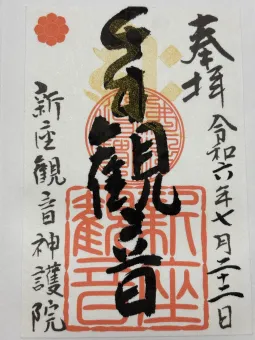 奉拝
令和六年七月二十二日
聖観世音
新座観音神護院
新座
観音